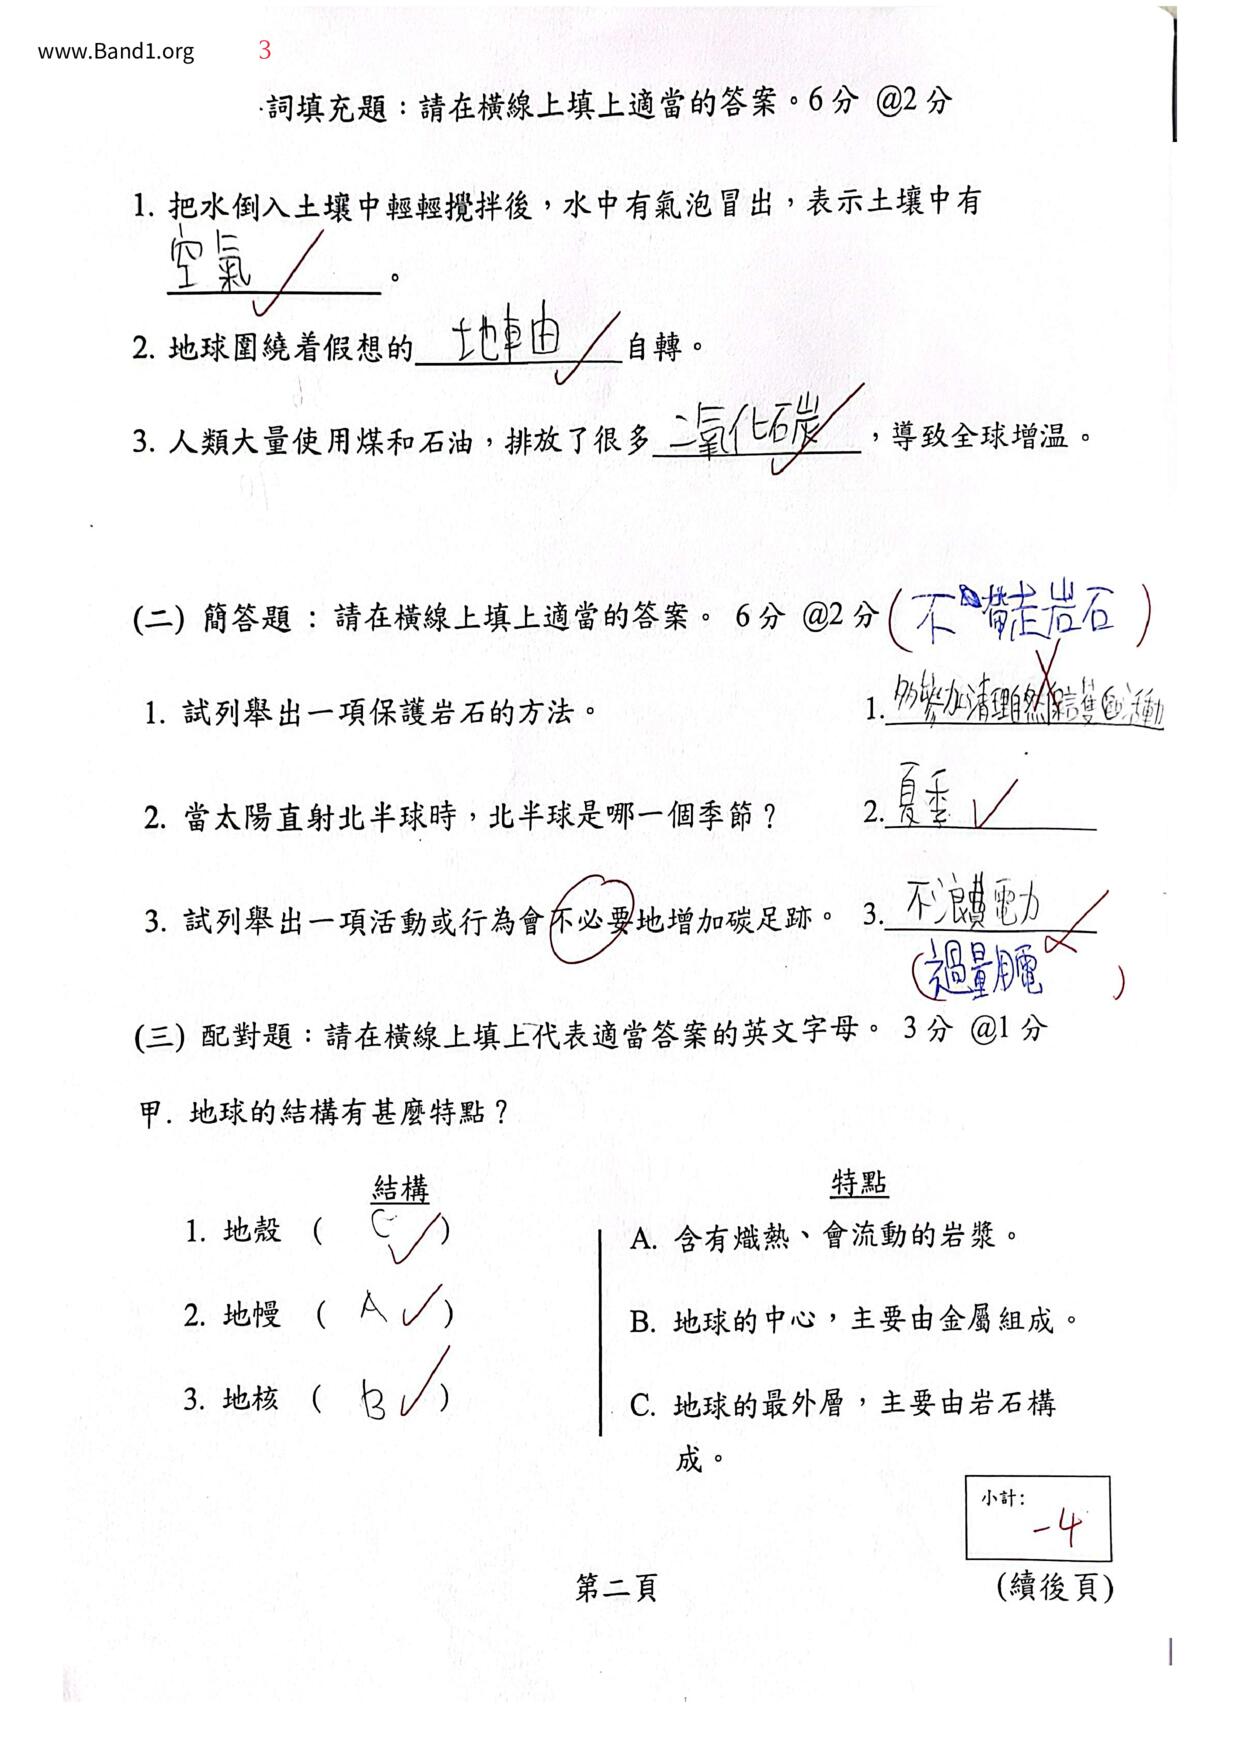 www.Band1.org 3
詞填充題：請在橫線上填上適當的答案。6分 @2分
1. 把水倒入土壤中輕輕攪拌後，水中有氣泡冒出，表示土壤中有
空氣。
2. 地球圍繞着假想的地軸自轉。
3. 人類大量使用煤和石油，排放了很多二氧化碳，導致全球增温。
(二) 簡答題：請在橫線上填上適當的答案。 6分 @2分 (不帶走岩石)
1. 試列舉出一項保護岩石的方法。 1. 多參加清理自然保護區活動
2. 當太陽直射北半球時，北半球是哪一個季節？ 2. 夏季
3. 試列舉出一項活動或行為會不必要地增加碳足跡。 3. 不浪費電力
(過量用電)
(三) 配對題：請在橫線上填上代表適當答案的英文字母。 3分 @1分
甲. 地球的結構有甚麼特點？
結構 特點
1. 地殼 ( C ) A. 含有熾熱、會流動的岩漿。
2. 地幔 ( A ) B. 地球的中心，主要由金屬組成。
3. 地核 ( B ) C. 地球的最外層，主要由岩石構
成。
小計：
-4
第二頁 (續後頁)